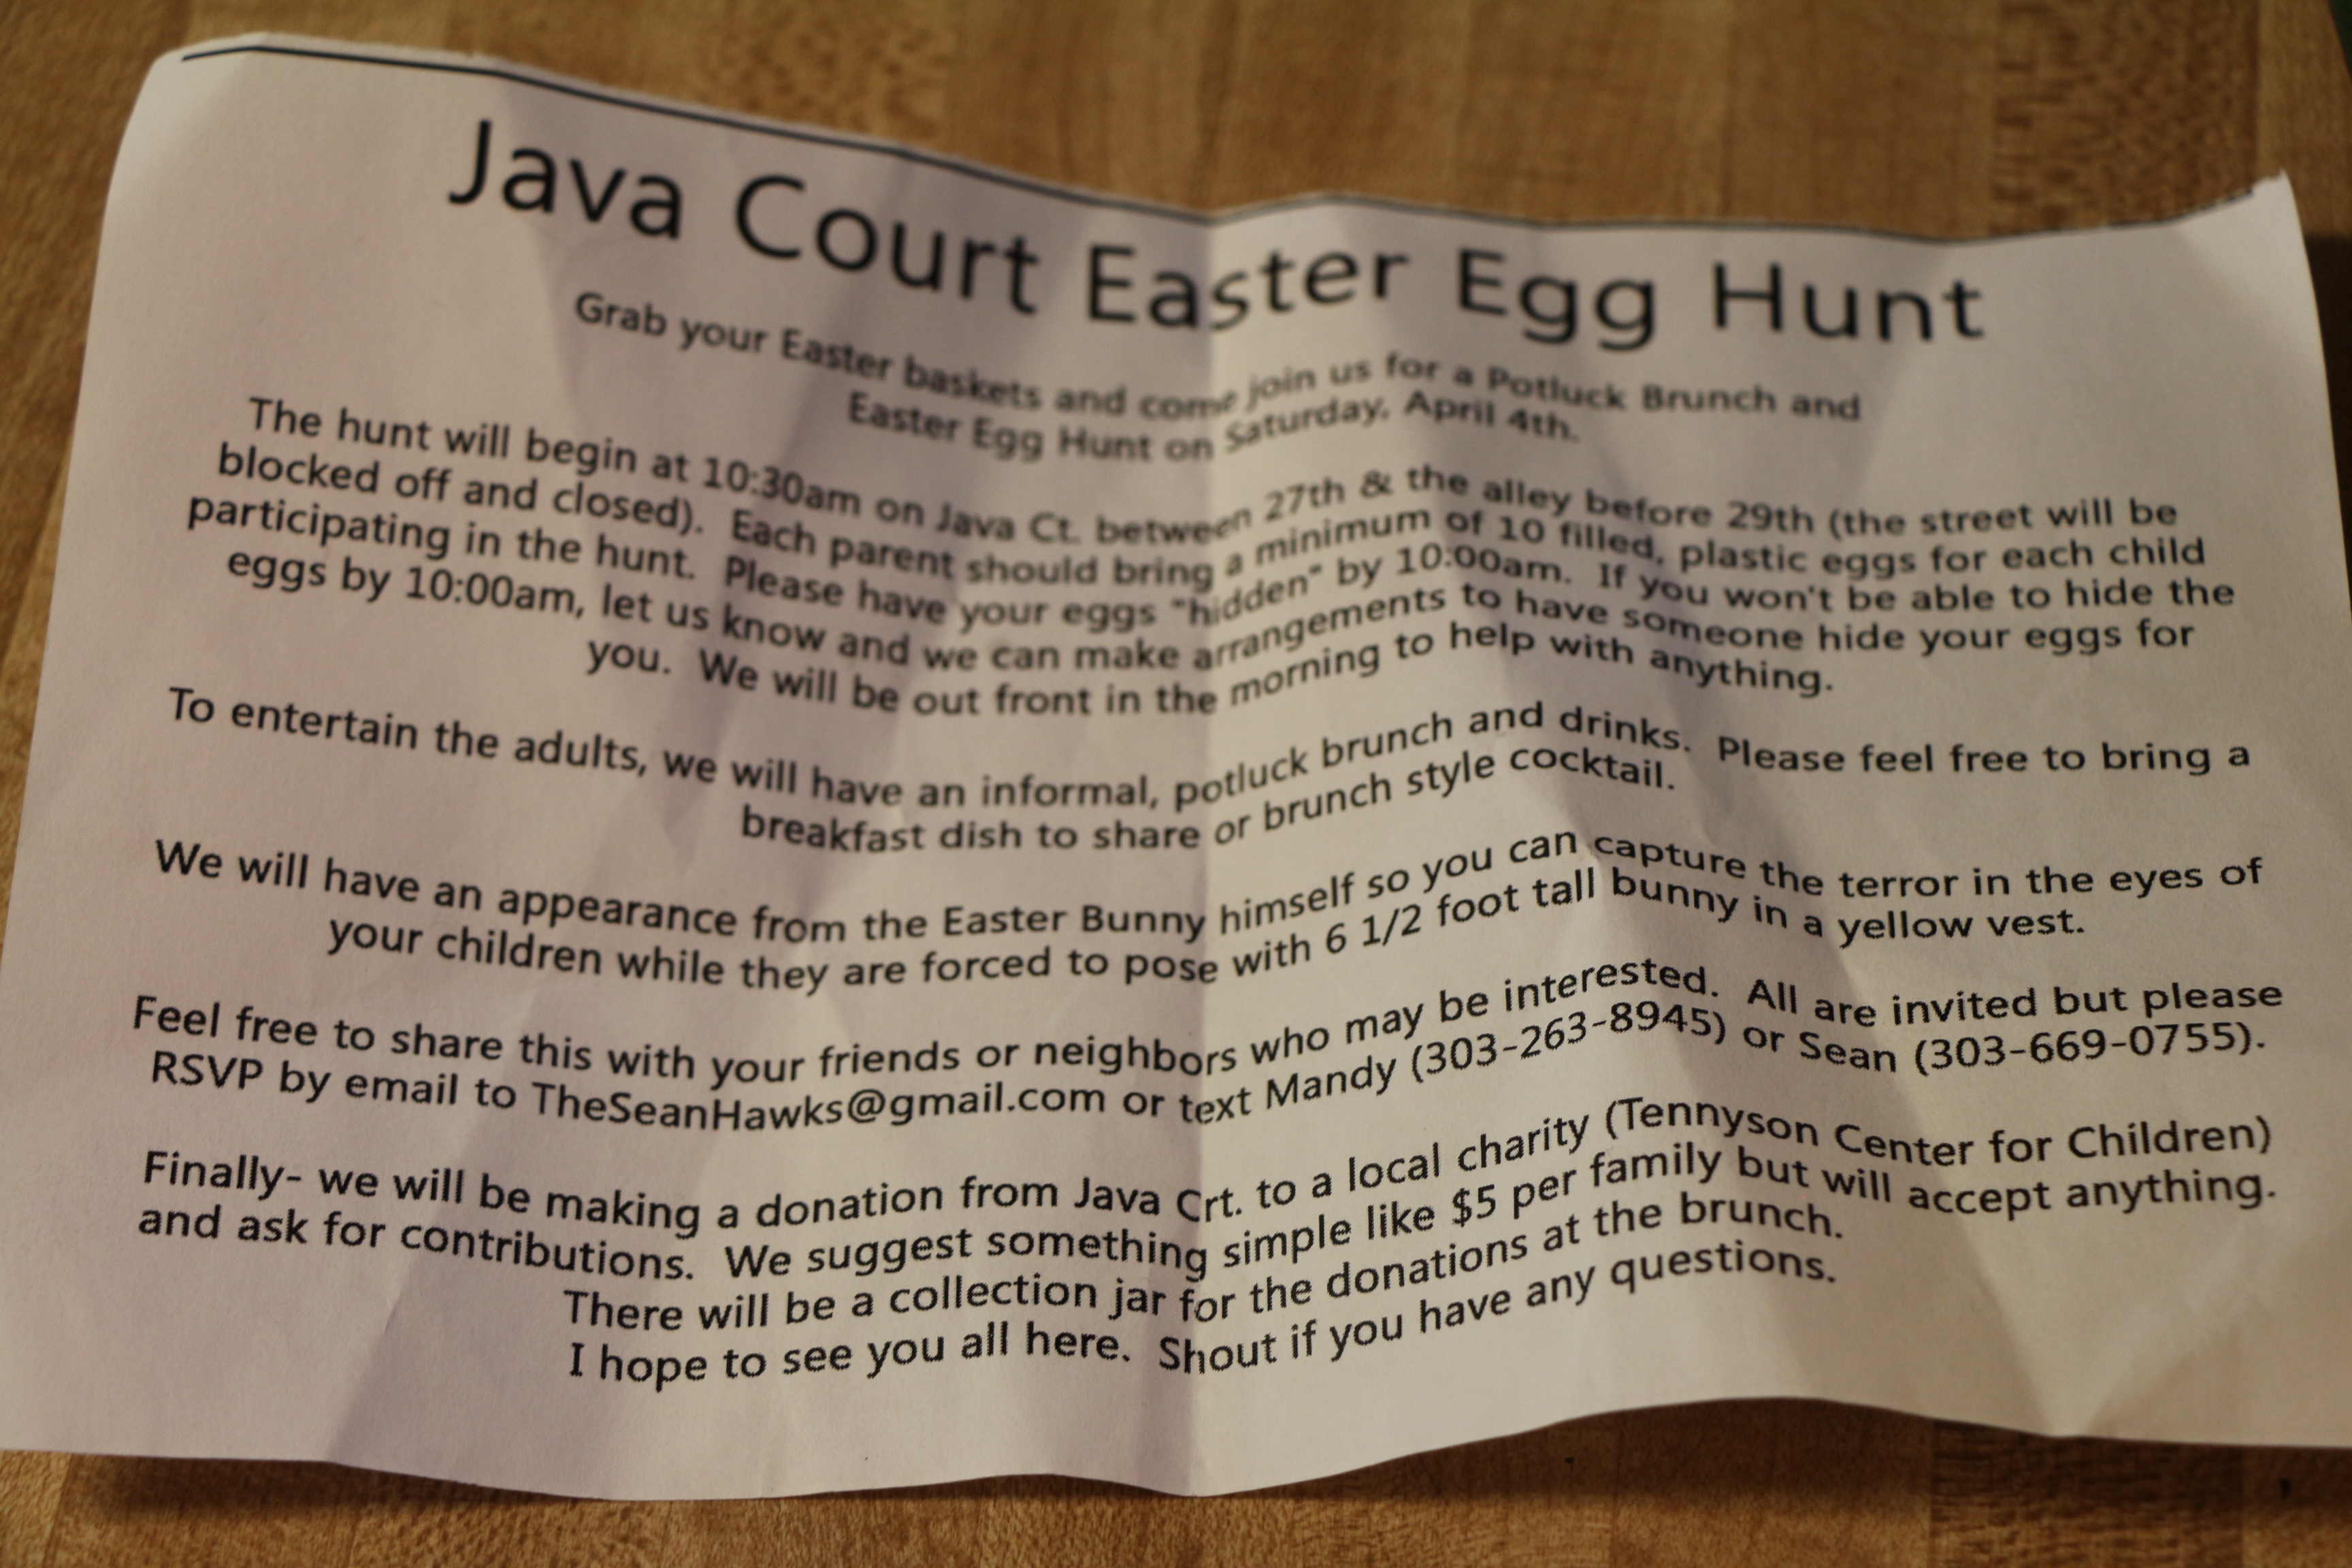 Java Court Easter Egg Hunt
Grab your Easter baskets and come join us for a Potluck Brunch and
Easter Egg Hunt on Saturday, April 4th.
The hunt will begin at 10:30am on Java Ct. between 27th & the alley before 29th (the street will be
blocked off and closed).  Each parent should bring a minimum of 10 filled, plastic eggs for each child
participating in the hunt.  Please have your eggs "hidden" by 10:00am.  If you won't be able to hide the
eggs by 10:00am, let us know and we can make arrangements to have someone hide your eggs for
you.  We will be out front in the morning to help with anything.
To entertain the adults, we will have an informal, potluck brunch and drinks.  Please feel free to bring a
breakfast dish to share or brunch style cocktail.
We will have an appearance from the Easter Bunny himself so you can capture the terror in the eyes of
your children while they are forced to pose with 6 1/2 foot tall bunny in a yellow vest.
Feel free to share this with your friends or neighbors who may be interested.  All are invited but please
RSVP by email to TheSeanHawks@gmail.com or text Mandy (303-263-8945) or Sean (303-669-0755).
Finally- we will be making a donation from Java Crt. to a local charity (Tennyson Center for Children)
and ask for contributions.  We suggest something simple like $5 per family but will accept anything.
There will be a collection jar for the donations at the brunch.
I hope to see you all here.  Shout if you have any questions.